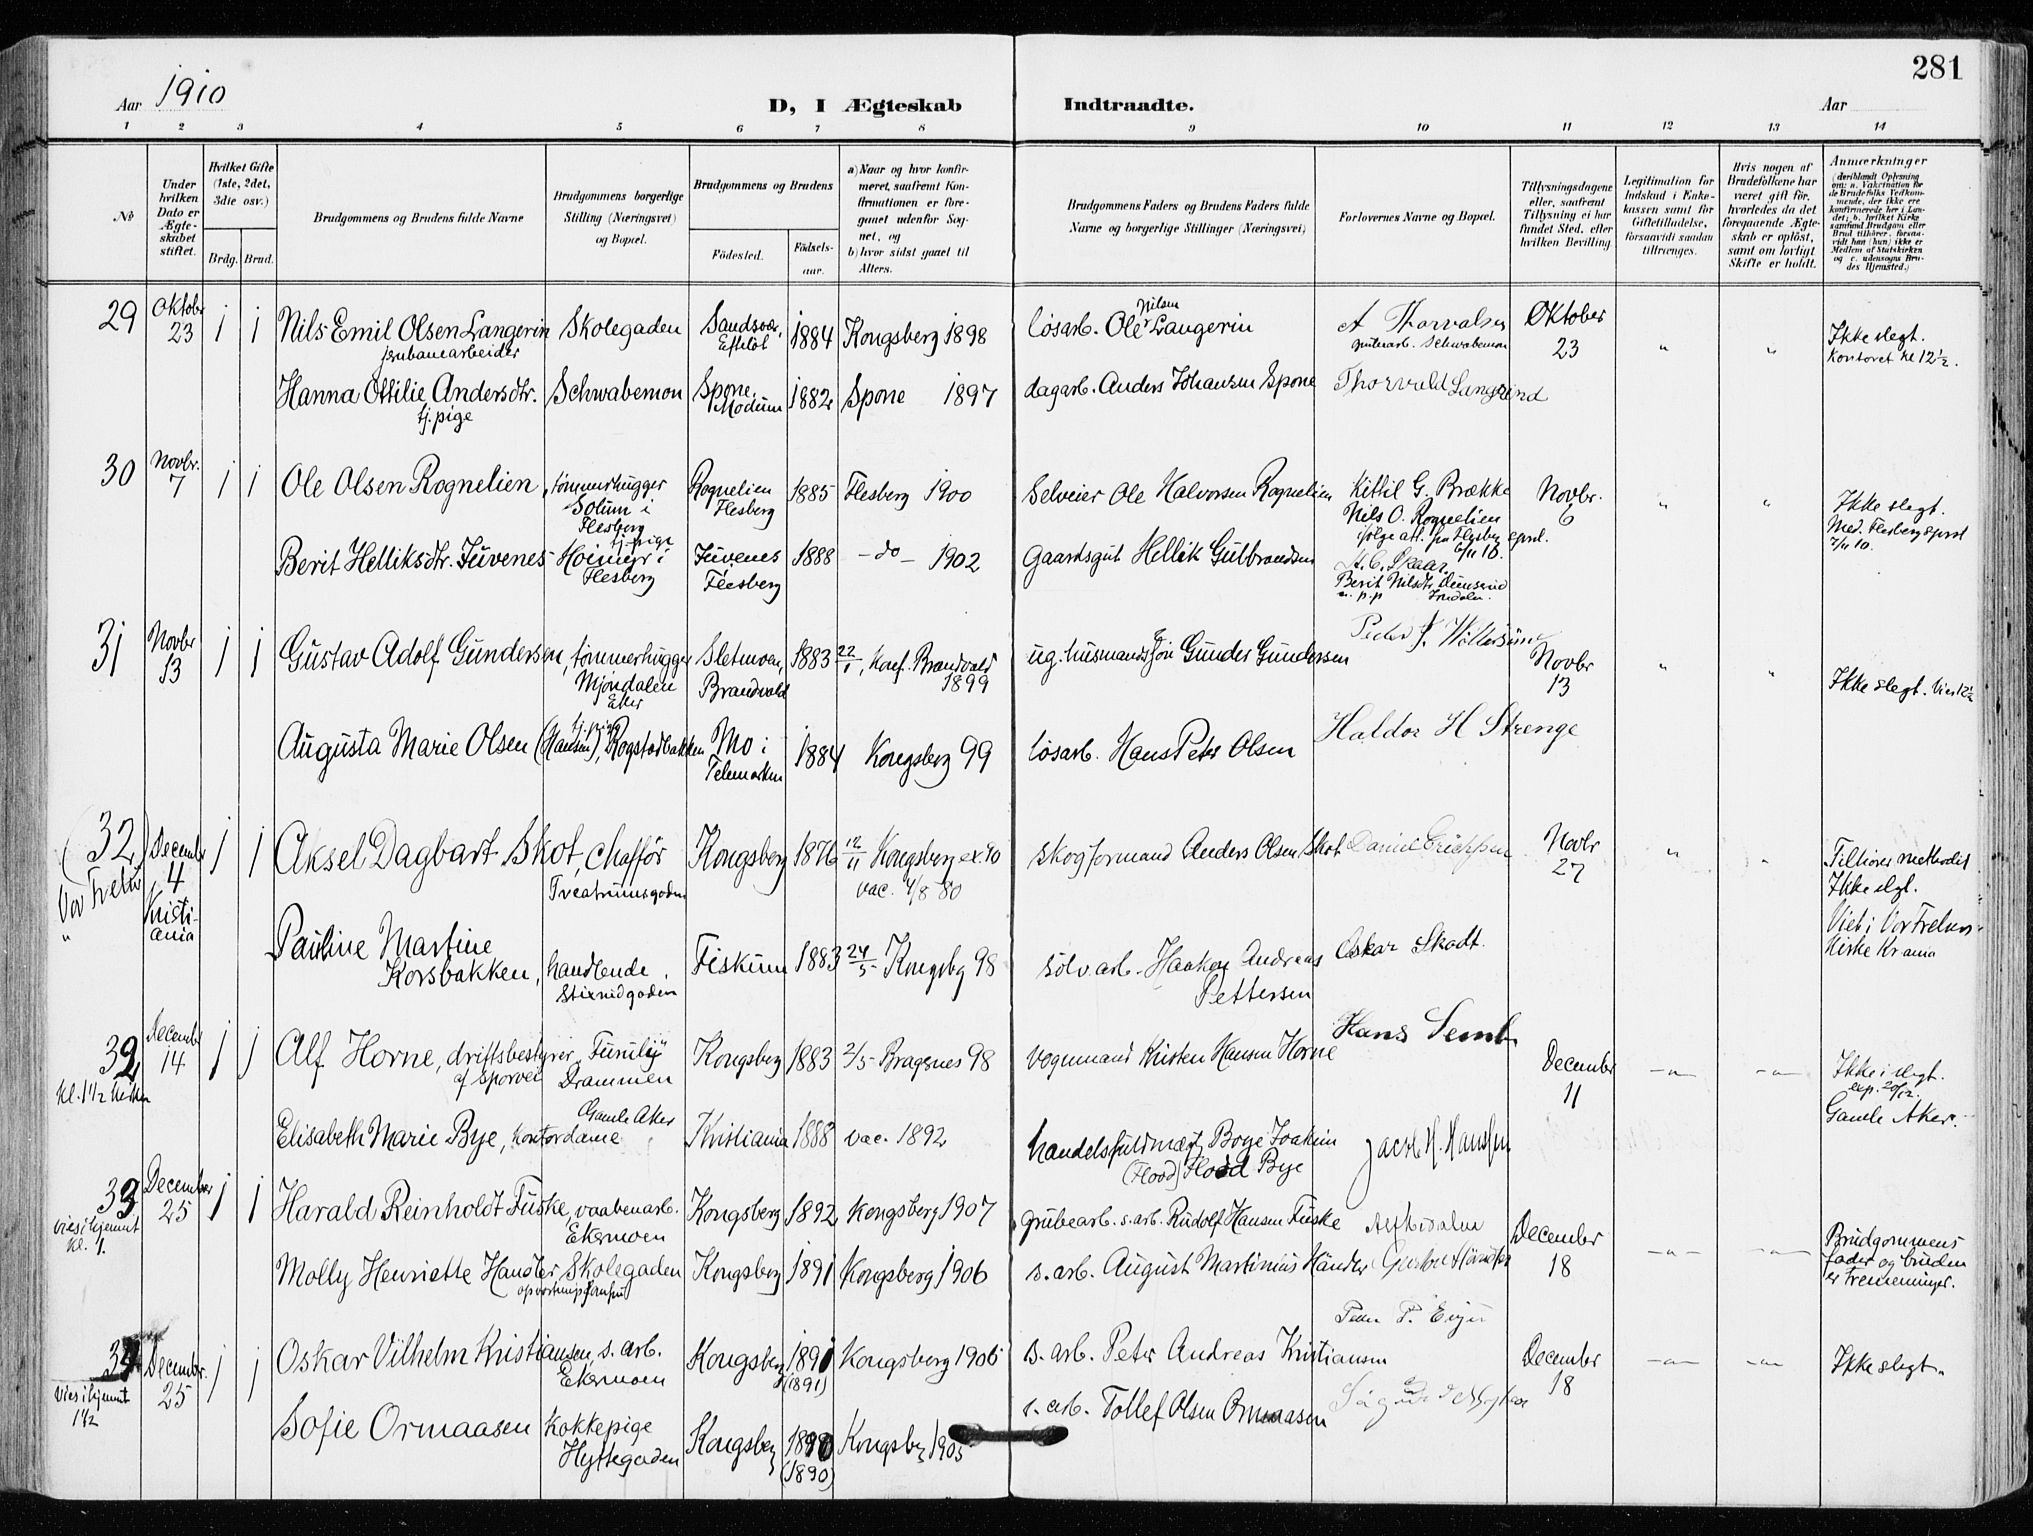 281
Aar 1910
D, I Ægteskab Indtraadte.
Aar
1 2 3 4 5 6 7 8 9 10 11 12 13 14
No
Under hvilken Dato er Ægteskabet stiftet.
Hvilket Gifte (1ste, 2det, 3die osv.)
Brdg. Brud.
Brudgommens og Brudens fulde Navne
Brudgommens borgerlige Stilling (Næringsvei) og Bopæl.
Brudgommens og Brudens
Fødested.
Fødselsaar.
a) Naar og hvor konfirmeret, saafremt Konfirmationen er foregaaet udenfor Sognet, og
b) hvor sidst gaaet til Alters.
Brudgommens Faders og Brudens Faders fulde Navne og borgerlige Stillinger (Næringsvei)
Forlovernes Navne og Bopæl.
Tillysningsdagene eller, saafremt Tillysning ei har fundet Sted, efter hvilken Bevilling
Legitimation for Indskud i Enkekassen samt for Giftetilladelse, forsaavidt saadan tiltrænges.
Hvis nogen af Brudefolkene har været gift før, hvorledes da det foregaaende Ægteskab er opløst, samt om lovligt Skifte er holdt.
Anmærkninger (deriblandt Oplysning om: a. Vakcination for de Brudefolks Vedkommende, der ikke ere konfirmerede her i Landet; b. hvilket Kirkesamfund Brudgom eller Brud tilhører, forsaavidt han (hun) ikke er Medlem af Statskirken og c. udensogns Brudes Hjemsted.)
29 Oktober 23 1 1 Nils Emil Olsen Langerin Skolegaden Sandsvær, Efteløt 1884 Kongsberg 1898 løsarb. Ole Nilsen Langerin A Thorvalsen Oktober 23 " " Ikke slegt.
jernbanearbeider grubearb. Schwabemoen Kontoret kl 12½.
Hanna Ottilie Andersdtr. Schwabemon Spone, Modum 1882 Spone 1897 dagarb. Anders Johansen Spone Thorvald Langerind
tj. pige
30 Novbr. 7 1 1 Ole Olsen Rognelien, tømmerhugger Rognelien Flesberg 1885 Flesberg 1900 Selveier Ole Halvorsen Rognelien Kittil G. Brække Novbr. 6 " " Ikke slegt.
Solum i Flesberg Nils O. Rognelien Med. Flesberg sprst
ifølge att. fra Flesberg sprst. 6/11 10. 7/11 10.
Berit Helliksdtr. Juvenes tj. pige Høimyr i Flesberg Juvenes Flesberg 1888 - do - 1902 Gaardsgut Hellik Gulbrandsen H. C. Skaar
Berit Nilsdtr.
m. p. p
31 Novbr 13 1 1 Gustav Adolf Gundersen, tømmerhugger Sletmoen, Brandvold 1883 22/1, Konf. Brandvold 1899 ug. husmandssøn Gunder Gundersen Peder Novbr 13 " " Ikke slegt. Vies 12½
Mjøndalen Eker
Augusta Marie Olsen (Hansen), tj. pige Rogstadbakken Mo i Telemarken 1884 Kongsberg 99 løsarb. Hans Peter Olsen Haldor H Strenge
(32) December 4 1 1 Aksel Dagbart Skot, chaffør Kongsberg 1876 12/11 Kongsberg ex. 90 skogformand Anders Olsen Skot Daniel Novbr 27 " " Tilhører methodist
Vor Frelser Kristiania vac. 4/8 80 Ikke slgt.
" Viet i Vor Frelsers Kirke Krania
Pauline Martine Korsbakken, handlende, Fiskum 1883 24/5 Kongsbg 98 sølvarb. Haakon Andreas Pettersen Oskar Skodt.
32 December 14 1 1 Alf Horne, driftsbestyrer af sporvei Drammen Kongsberg 1883 2/5 Bragernes 98 Vognmand Kristen Hansen Horne Hans Semb December 11 -"- -"- Ikke i slegt.
kl. 1½ kirken exp. 20/12.
Gamle Aker.
Elisabeth Marie Bye, kontordame Gamle Aker Kristiania 1888 vac. 1892 handelsfuldmægt. Boye Joakim (Flood) Flood Bye Jacob H. Hanssen
33 December 25 1 1 Harald Reinholdt Fuske, vaabenarb. Ekermoen Kongsberg 1892 Kongsberg 1907 grubearb. s. arb. Rudolf Hansen Fuske December 18 -"- -"- Brudgommens fader og bruden er tremeninger.
Vies i hjemmet kl. 1.
Molly Henriette Handler, Skolegaden Kongsberg 1891 Kongsberg 1906 s. arb. August Martinius Händler
34 December 25 1 1 Oskar Vilhelm Kristiansen, s. arb. Ekermoen Kongsberg 1891 (1891) Kongsberg 1905 s. arb. Peter Andreas Kristiansen December 18 -"- -"- Ikke slegt.
Vies i hjemmet 1½
Sofie Ormaasen Kokkepige Hyttegaden Kongsberg 1890 (1890) Kongsberg 1905 s. arb. Tollef Olsen Ormaasen